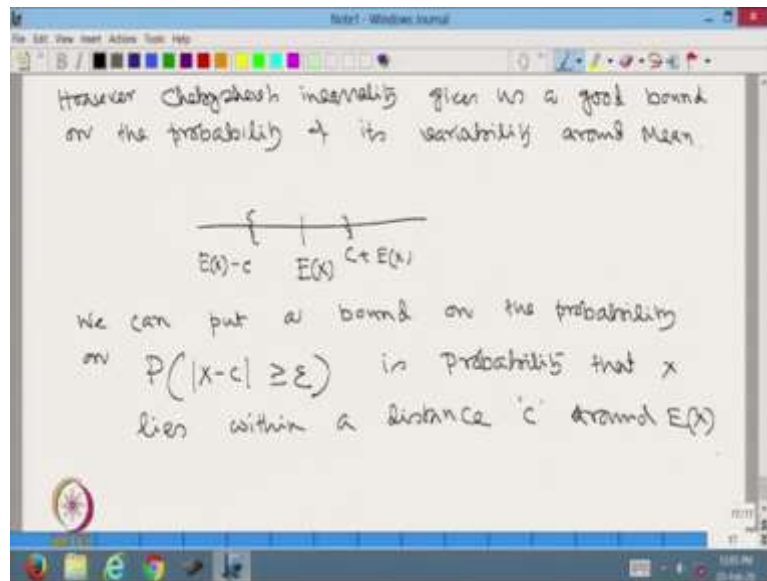 Note1 - Windows Journal
File Edit View Insert Actions Tools Help
However Chebyshesh inequality gives us a good bound
on the probability of its variability around Mean.
E(X)-c E(X) C+E(X)
We can put a bound on the probability
on P(|X-c| ≥ ε) is Probability that x
lies within a distance 'c' around E(X)